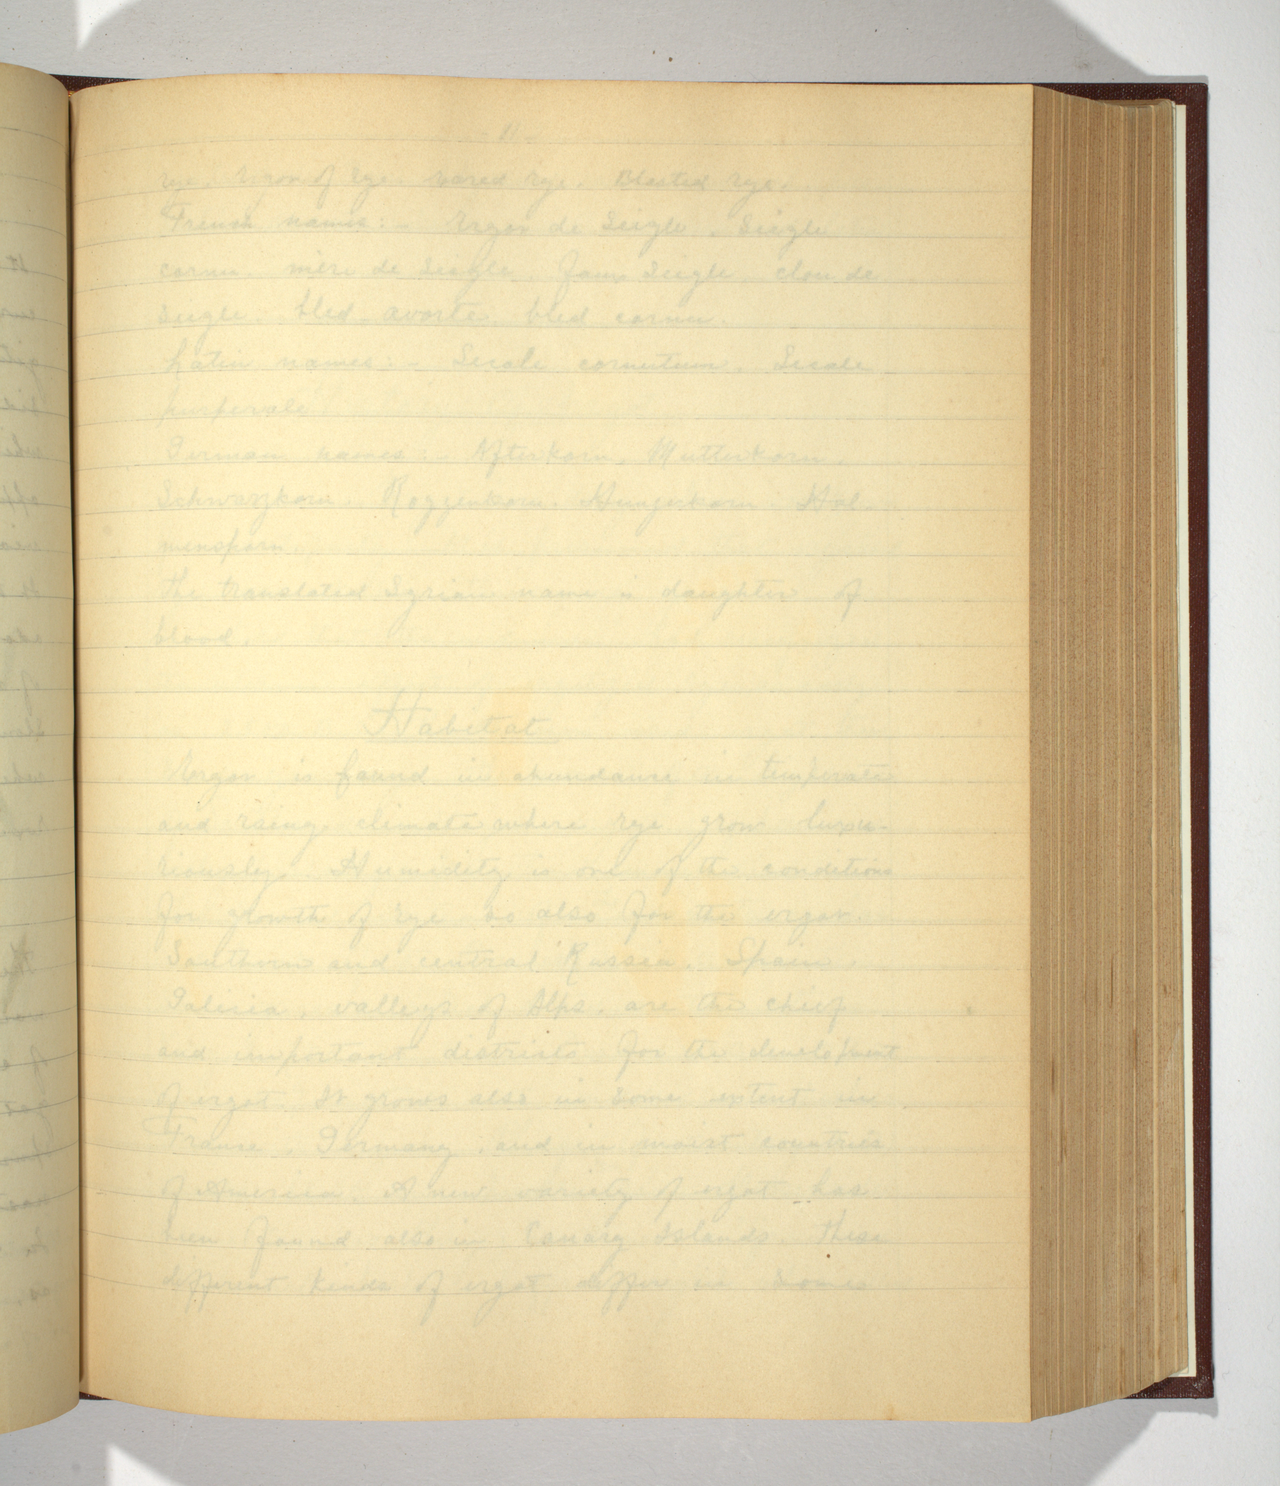 11
rye. of rye. rye. Blasted rye.
French names:- Ergot de Seigle. Seigle
cornu. mère de Seigle. Seigle clou de
Seigle. bled avorte. bled cornu.
Latin names:- Secale cornutum. Secale
German names:- Afterkorn. Mutterkorn.
Schwarzkorn. Roggenkorn. Hungerkorn. Hol-
The translated Syrian name is daughter of
blood.
Habitat
Ergot is found in abundance in temperate
and climate where rye grow luxu-
riously. Humidity is one of the conditions
for growth of rye so also for the ergot.
Southern and central Russia. Spain.
Galicia, valleys of Alps. are the chief
and important districts for the development
of ergot. It grows also in some extent in
France, Germany, and in moist countries
of America. A new variety of ergot has
been found also in Canary Islands. These
different kinds of ergot differ in